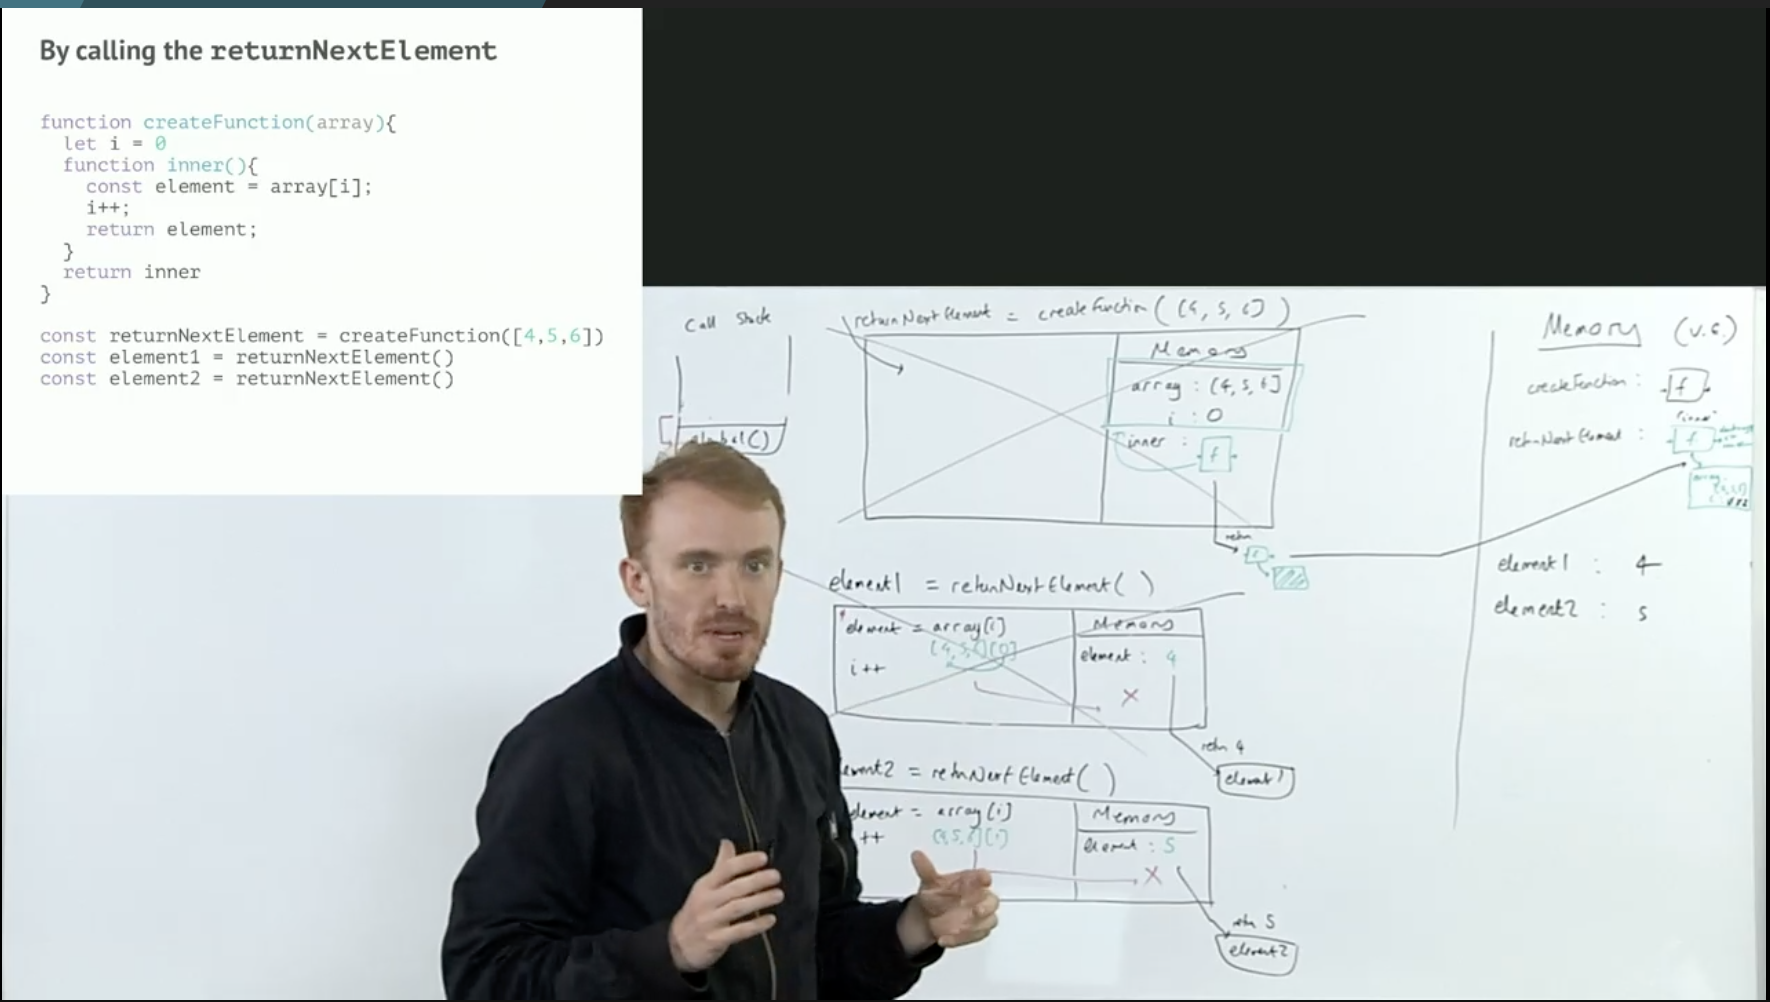 By calling the returnNextElement
function createFunction(array){
let i = 0
function inner(){
const element = array[i];
i++;
return element;
}
return inner
}
const returnNextElement = createFunction([4,5,6])
const element1 = returnNextElement()
const element2 = returnNextElement()
Call Stack
global()
returnNextElement = createFunction ( [4, 5, 6] )
Memory
array : [4, 5, 6]
i : 0
inner : f
retn
element1 = returnNextElement( )
element = array[i]
[4,5,6][0]
i ++
Memory
element : 4
X
retn 4
element1
ement2 = retnNextElement( )
element = array[i]
++ [4,5,6][1]
Memory
element : 5
X
retn 5
element2
Memory (v.e.)
createFunction : f
"inner"
retnNextElement : f
element1 : 4
element2 : 5